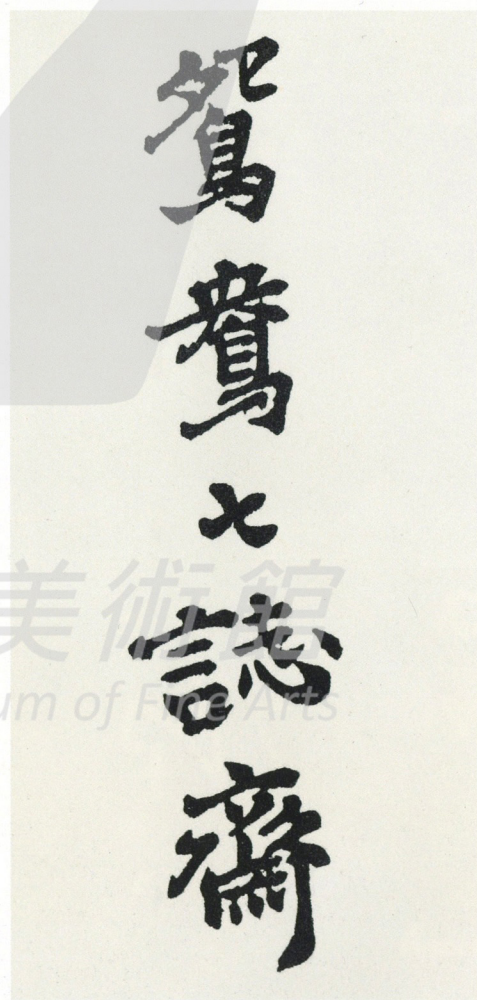 鴛鴦七誌齋
美術館
um of Fine Arts